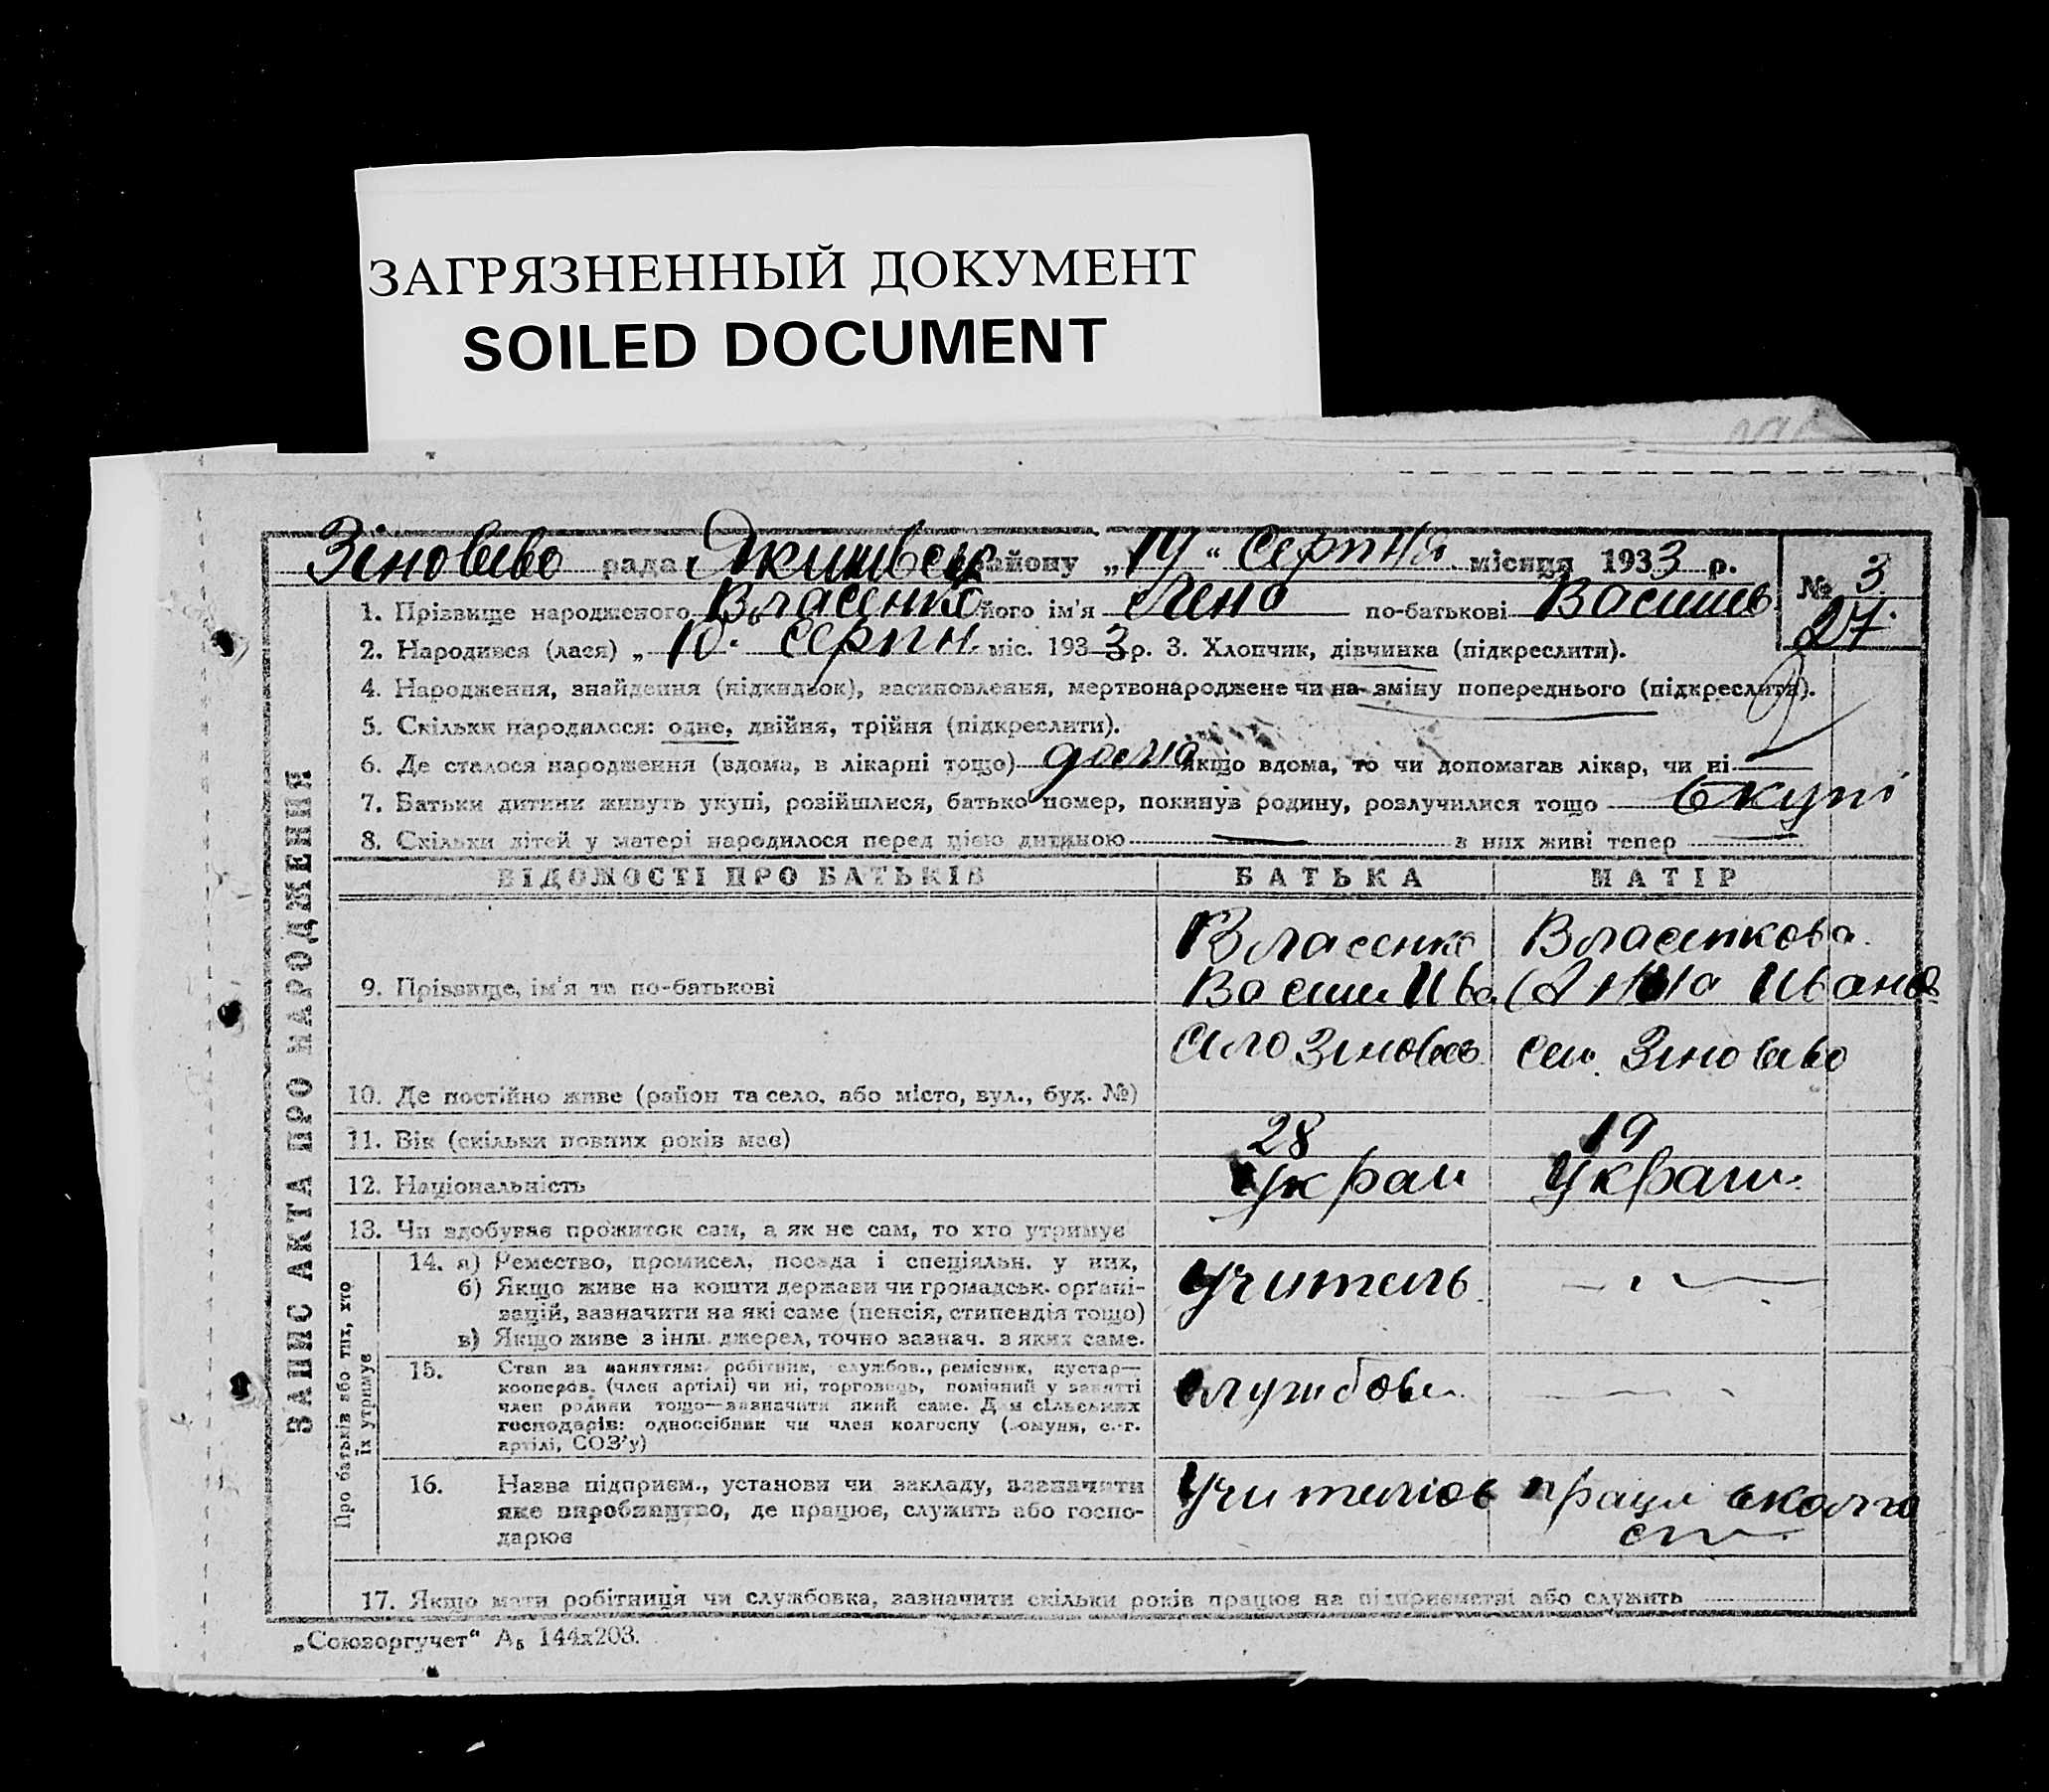 ЗАГРЯЗНЕННЫЙ ДОКУМЕНТ
SOILED DOCUMENT
Зіновєво рада району „ “ Серпня місяця 1933 р.
№ 3
27.
1. Прізвище народженого Власенко його ім'я Лена по-батькові Васильев
2. Народився (лася) „10. серпн. міс. 1933 р. 3. Хлопчик, дівчинка (підкреслити).
4. Народження, знайдення (підкидьок), засиновлення, мертвонароджене чи на зміну попереднього (підкреслити).
5. Скільки народилося: одне, двійня, трійня (підкреслити).
6. Де сталося народження (вдома, в лікарні тощо) дома якщо вдома, то чи допомагав лікар, чи ні
7. Батьки дитини живуть укупі, розійшлися, батько помер, покинув родину, розлучилися тощо вкупі
8. Скільки дітей у матері народилося перед цією дитиною — з них живі тепер —
ЗАПИС АКТА ПРО НАРОДЖЕННЯ
ВІДОМОСТІ ПРО БАТЬКІВ БАТЬКА МАТІР
Власенко
Васили Ива
Анна Иванов
9. Прізвище, ім'я та по-батькові
село Зіновєв сел. Зіновєво
10. Де постійно живе (район та село, або місто, вул., буд. №)
11. Вік (скільки повних років має) 28 19
12. Національність Украи Украи.
13. Чи здобуває прожиток сам, а як не сам, то хто утримує
Про батьків або тих, хто
їх утримує
14. а) Ремество, промисел, посада і спеціяльн. у них,
б) Якщо живе на кошти держави чи громадськ. органі-
зацій, зазначити на які саме (пенсія, стипендія тощо)
в) Якщо живе з інш. джерел, точно зазнач. з яких саме.
учитель
15. Стан за заняттям: робітник, службов., ремісник, кустар—
кооперов. (член артілі) чи ні, торговець, помічний у занятті
член родини тощо—зазначити який саме. Для сільських
господарів: одноосібник чи член колгоспу (комуни, с.-г.
артілі, СОЗ'у)
службов
16. Назва підприєм., установи чи закладу, зазначити
яке виробництво, де працює, служить або госпо-
дарює
17. Якщо мати робітниця чи службовка, зазначити скільки років працює на підприємстві або служить
„Союзоргучет“ А5 144х203.